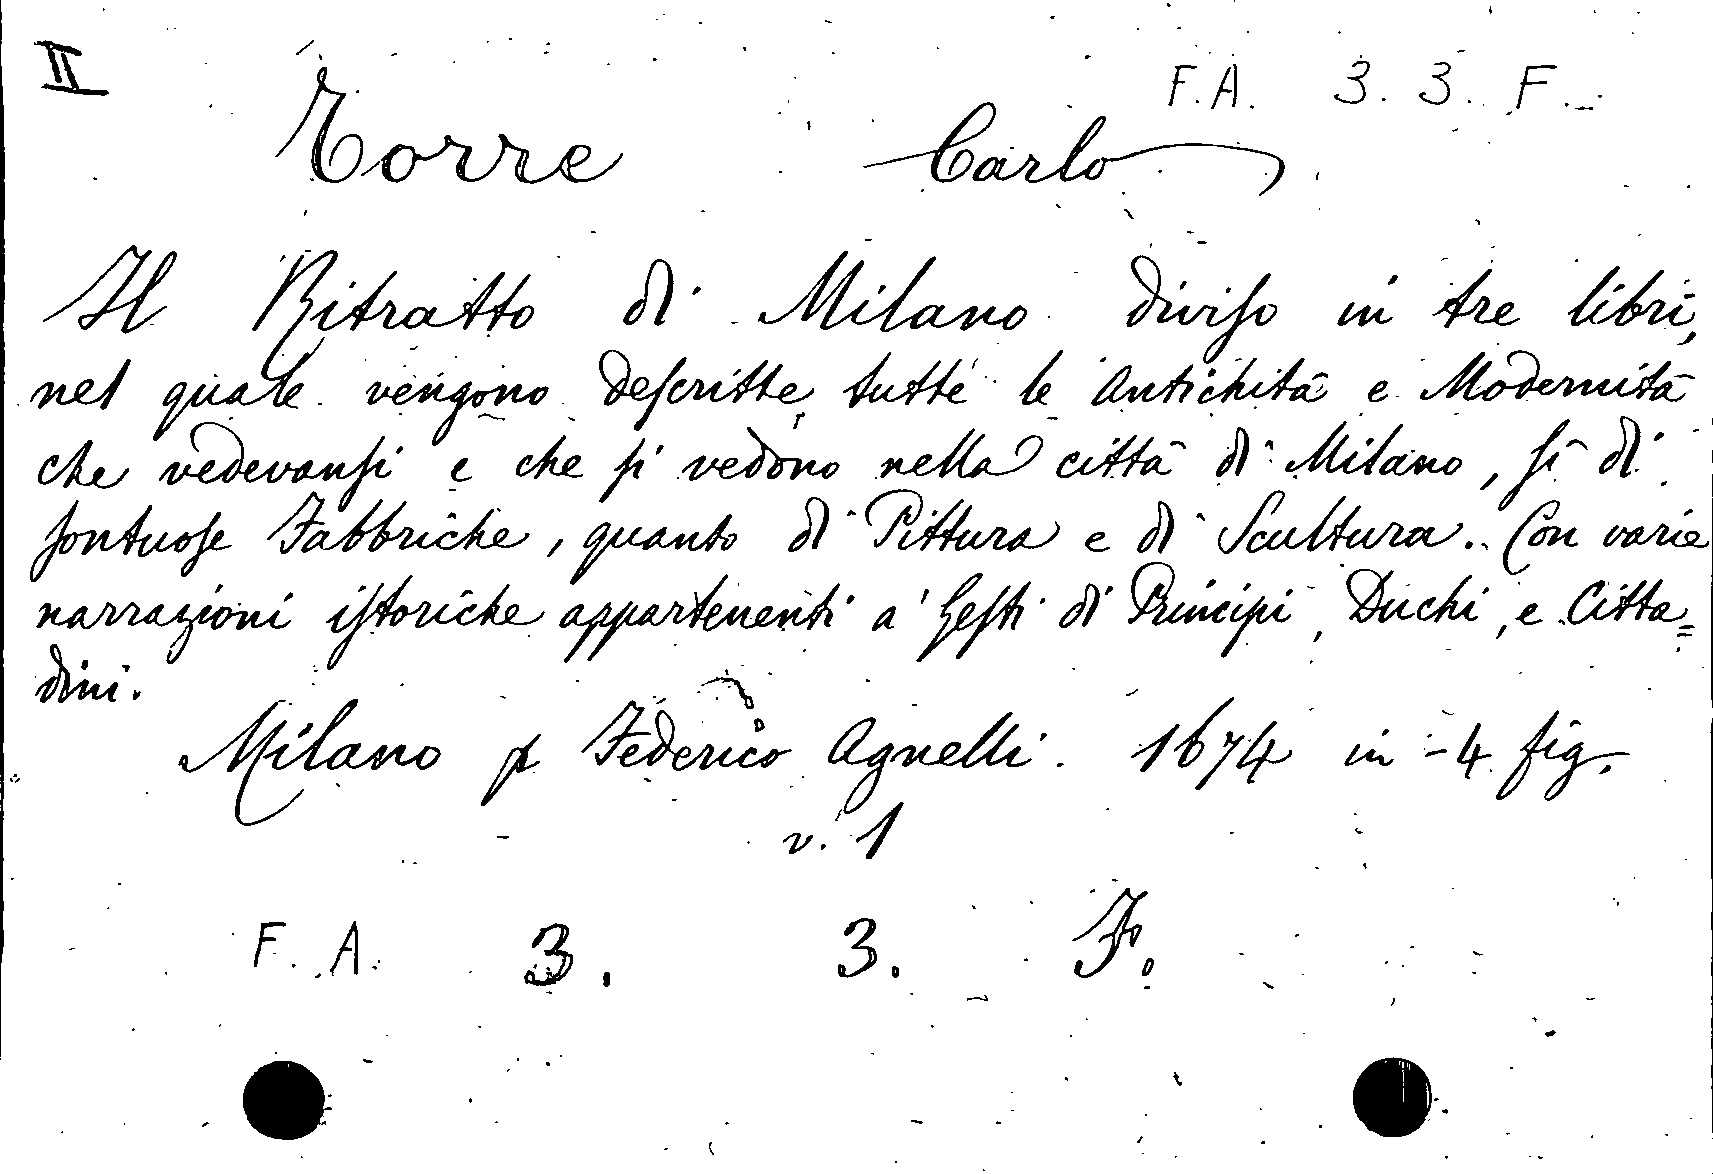 II
F. A. 3. 3. F.
Torre Carlo
Il Ritratto di Milano diviso in tre libri,
nel quale vengono descritte tutte le Antichità e Modernità
che vedevansi e che si vedono nella città di Milano, sì di
sontuose Fabbriche, quanto di Pittura e di Scultura. Con varie
narrazioni istoriche appartenenti a' Gesti di Principi, Duchi, e Citta=
dini.
Milano p Federico Agnelli. 1674 in-4 fig.
v. 1
F. A. 3. 3. F.